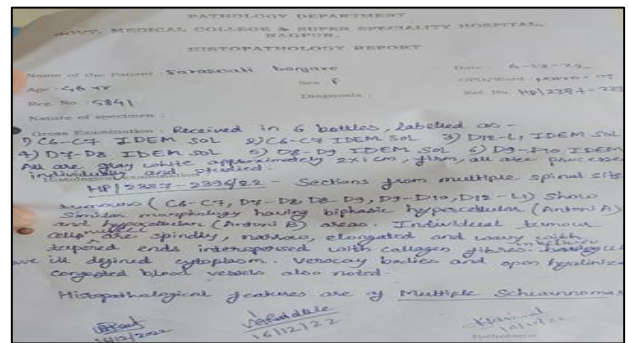 PATHOLOGY DEPARTMENT
GOVT. MEDICAL COLLEGE & SUPER SPECIALITY HOSPITAL,
NAGPUR.
HISTOPATHOLOGY REPORT
Name of the Patient : Saraswati banjare Date : 6-12-22
Age : 56 yr Sex : F
Reg No : 5841 Diagnosis : Ref. No. HP/2387-239
Nature of specimen :
Gross Examination : Received in 6 bottles, labelled as -
1) C6-C7 IDEM SOL 2) C6-C7 IDEM SOL 3) D12-L1 IDEM SOL
4) D7-D8 IDEM SOL 5) D8-D9 IDEM SOL 6) D9-D10 IDEM
All are gray white approximately 2x1 cm, firm, all are processe
individually and studied.
HP/2387-2396/22 - Sections from multiple spinal site
tumours (C6-C7, D7-D8, D8-D9, D9-D10, D12-L1) Show
Similar morphology having biphasic hypercellular (Antoni A)
and hypocellular (Antoni B) areas. Individual tumour
cells are spindly, narrow, elongated and wavy with
tapered ends interspersed with collagen fibres.
ill defined cytoplasm. Verocay bodies and hyalinize
congested blood vessels also noted.
Histopathological features are of Multiple Schwannomas
16/12/2022 16/12/22